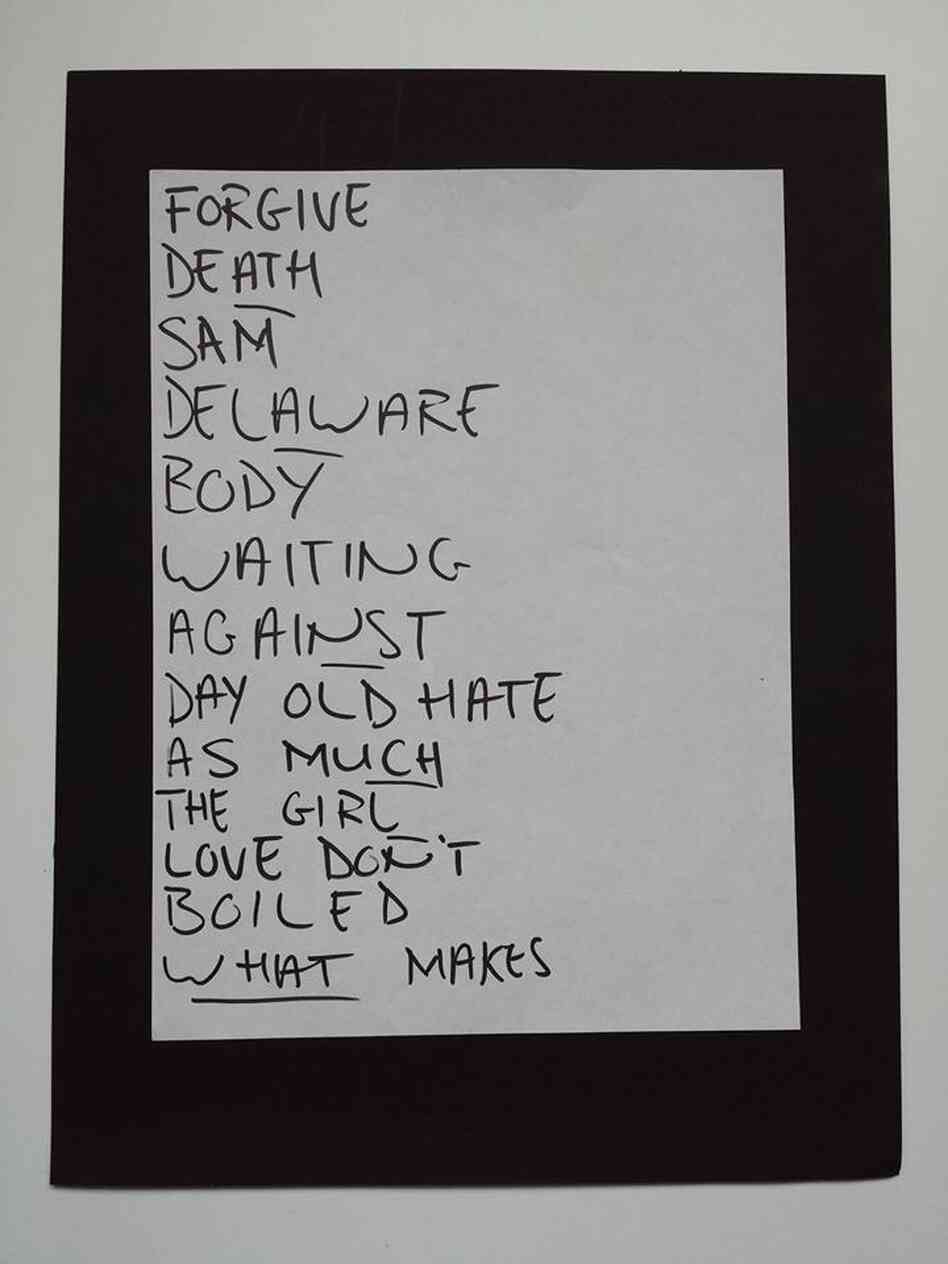 FORGIVE
DEATH
SAM
DELAWARE
BODY
WAITING
AGAINST
DAY OLD HATE
AS MUCH
THE GIRL
LOVE DON'T
BOILED
WHAT MAKES